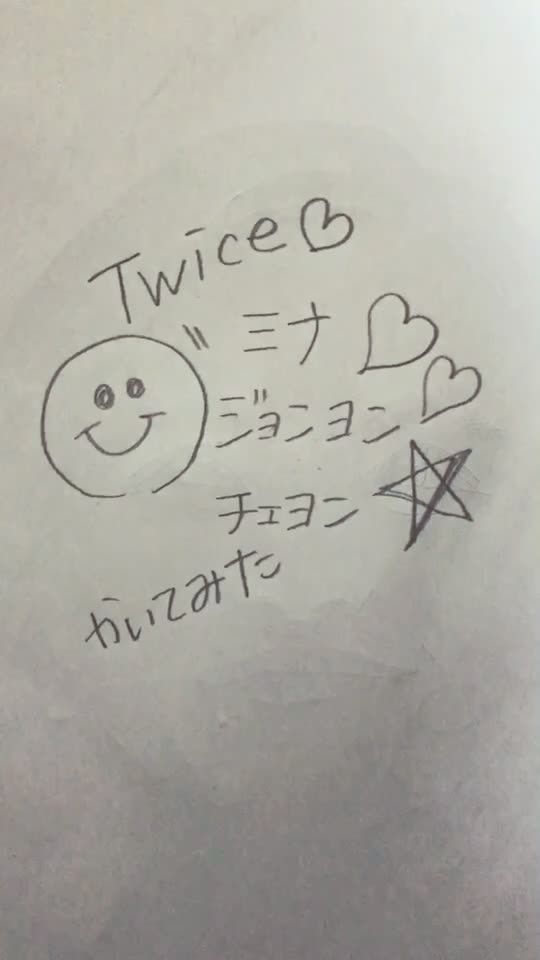 Twice♡
ミナ♡
ジョンヨン♡
チェヨン☆
かいてみた